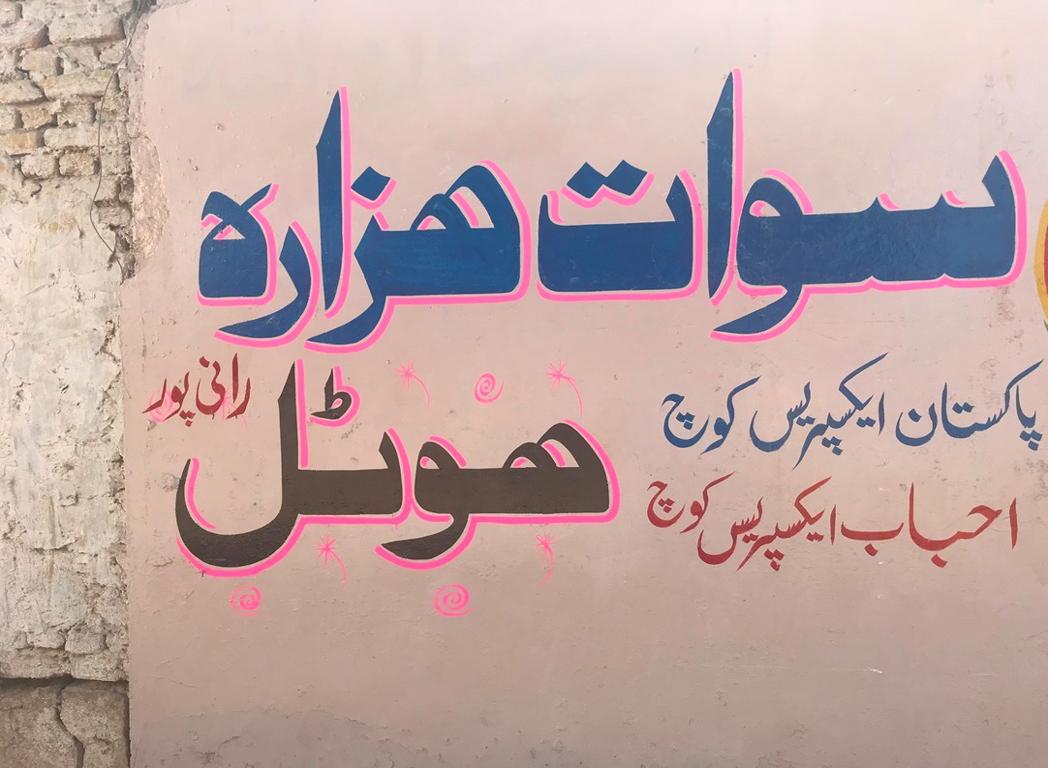 سوات هزاره
هوٹل رانی پور
پاکستان ایکسپریس کوچ
احباب ایکسپریس کوچ